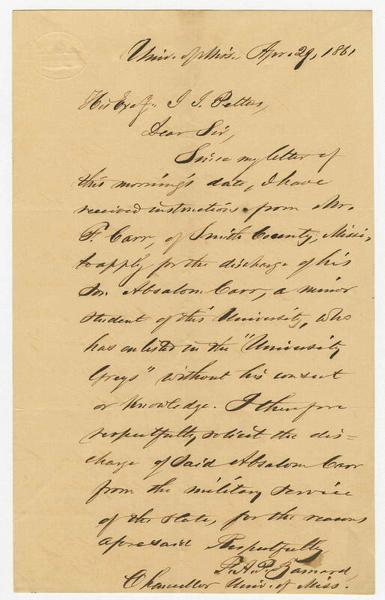 Univ. of Miss. Apr. 29, 1861
His Exc'y. J. J. Pettus,
Dear Sir,
Since my letter of
this morning's date, I have
received instructions from Mr.
F. Carr, of Smith County, Missi,
to apply for the discharge of his
son Absalom Carr, a minor
student of this University, who
has enlisted in the "University
Greys" without his consent
or knowledge. I therefore
respectfully solicit the dis=
charge of said Absalom Carr
from the military service
of the State, for the reasons
aforesaid Respectfully
F. A. P. Barnard,
Chancellor Univ. of Miss.